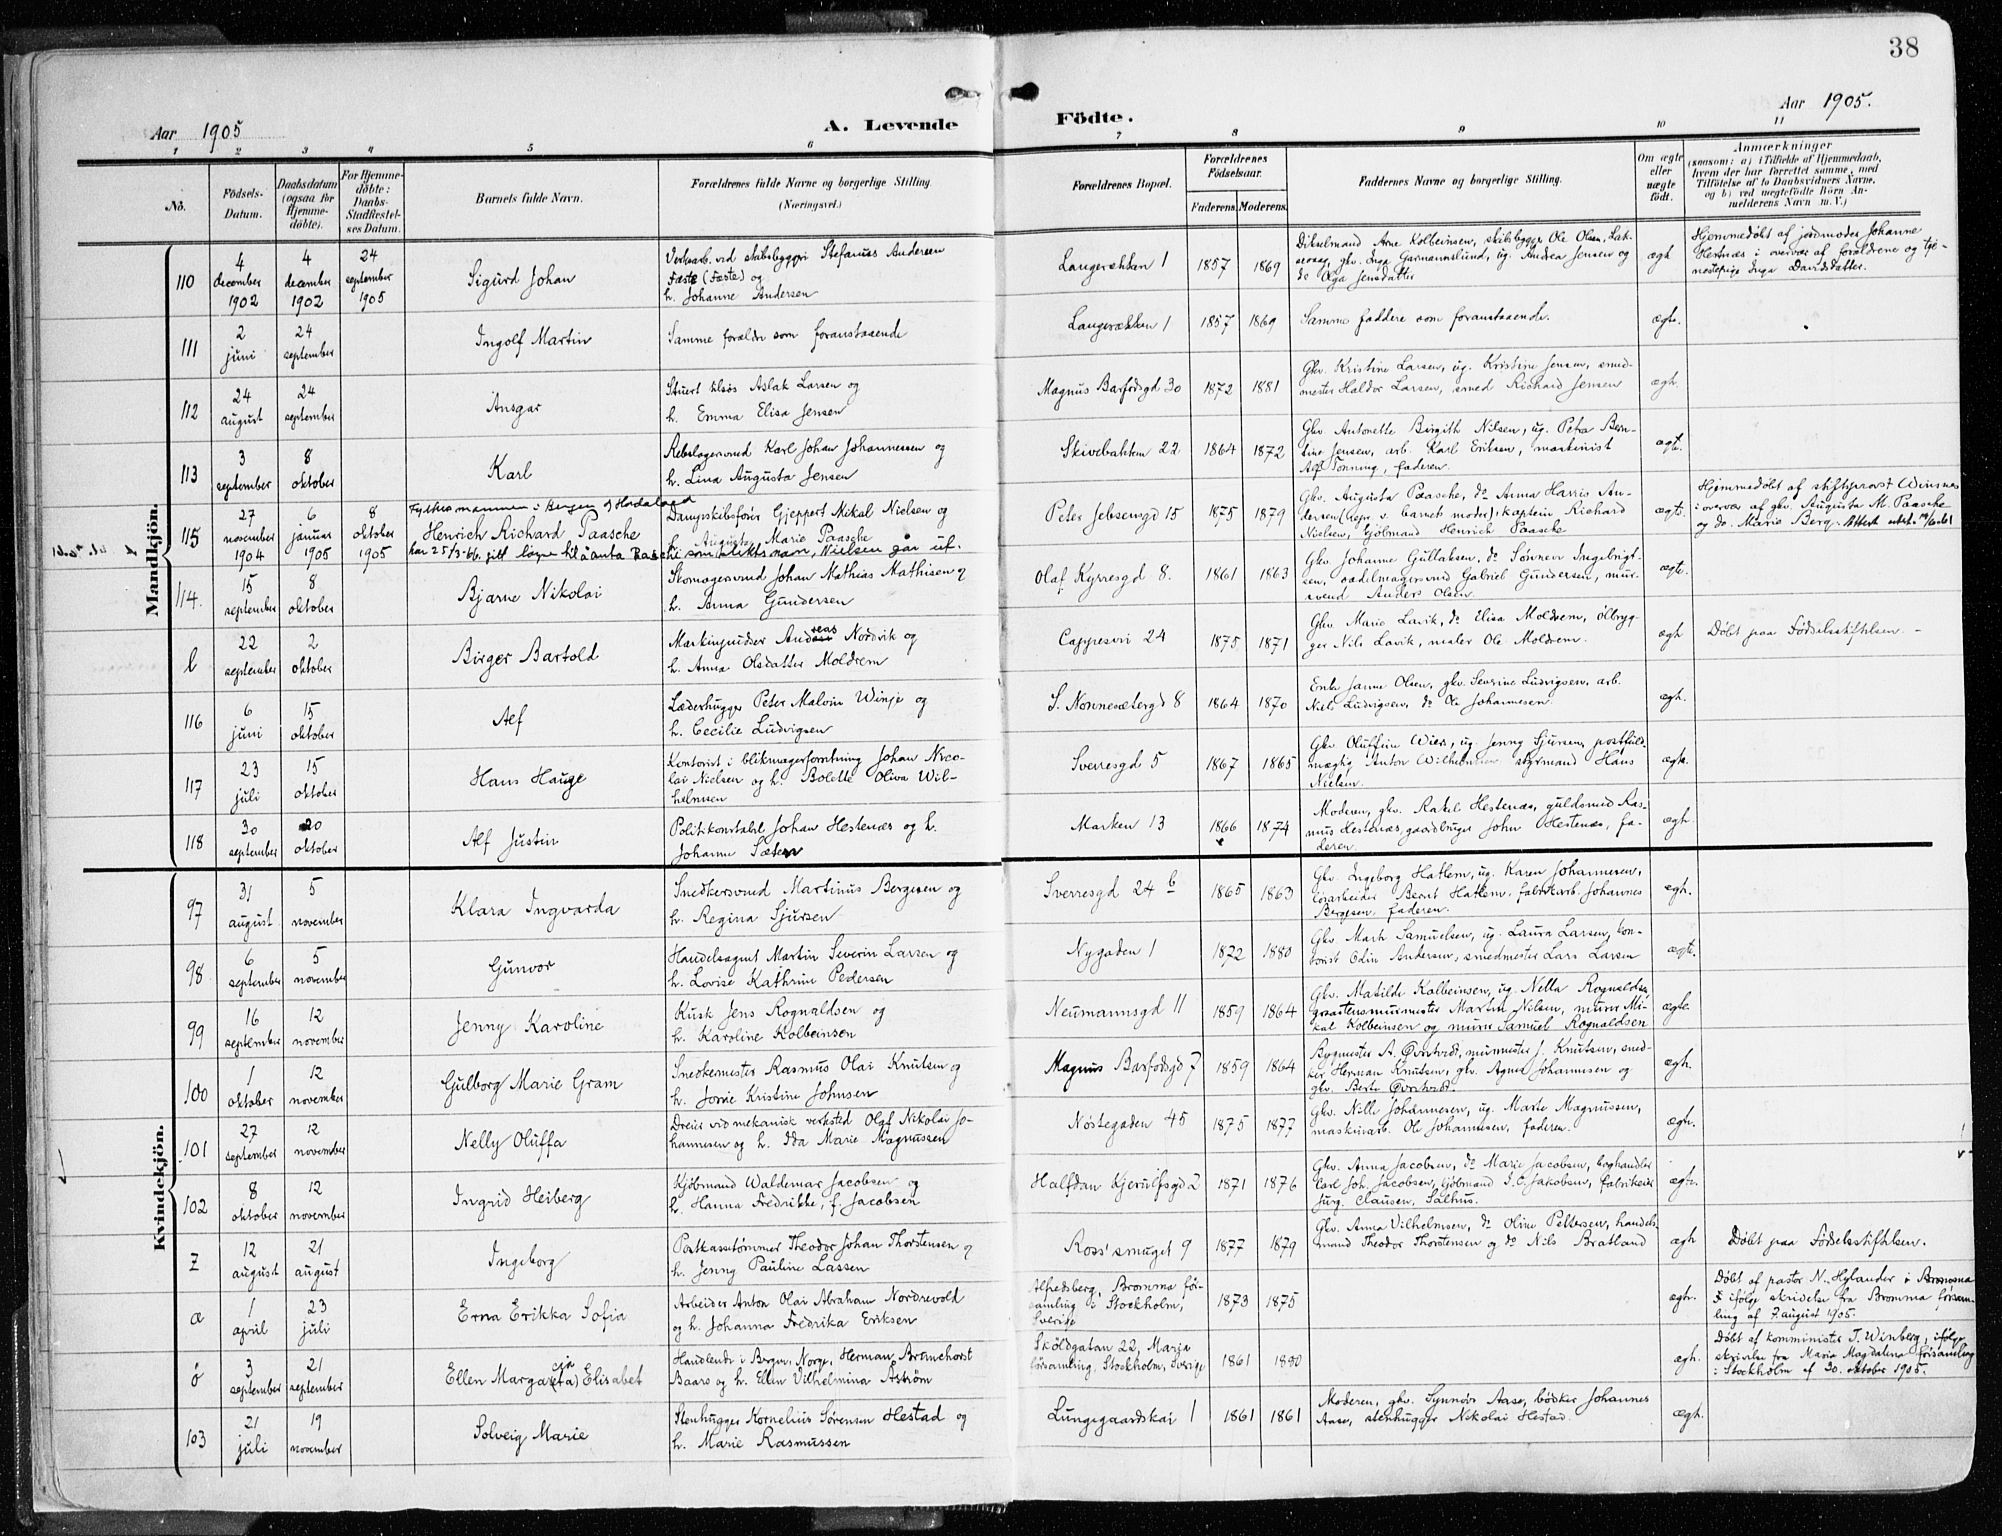 38
Aar 1905
A. Levende
Födte.
Aar 1905.
1 2 3 4 5 6 7 8 9 10 11
No.
Födsels-
Datum.
Daabsdatum
(ogsaa for
Hjemme-
døbte).
For Hjemme-
døbte:
Daabs-
Stadfæstel-
ses Datum.
Barnets fulde Navn.
Forældrenes fulde Navne og borgerlige Stilling.
(Næringsvei.)
Forældrenes Bopæl.
Forældrenes
Födselsaar.
Faderens. Moderens.
Faddernes Navne og borgerlige Stilling.
Om ægte
eller
uægte
født.
Anmærkninger
(saasom: a) i Tilfælde af Hjemmedaab,
hvem der har forrettet samme, med
Tilføielse af to Daabsvidners Navne,
og b) ved uægtefødte Børn An-
melderens Navn m. V.)
Mandkjön.
110
4 december 1902
4 december 1902
24 september 1905
Sigurd Johan
Stefanus Andersen
Fæste (Fæste) og
h. Johanne Andersen
Langerækken 1
1857 1869
Arne Kolbeinsen, skibsbygger Ole Olsen,
gkv. Inga Garmannslund, ug. Andrea Jensen og
do Olga Jensdatter
ægte
Hjemmedøbt af jordmoder Johanne
Hestnæs i overvær af forældrene og tje-
nestepige Inga Davidsdatter.
111
2 juni
24 september
Ingolf Martin
Samme forældre som foranstaaende
Langerækken 1
1857 1869
Samme faddere som foranstaaende.
ægte.
112
24 august
24 september
Ansgar
Stuert Aslak Larsen og
h. Emma Elisa Jensen
Magnus Barfodsgd 30
1872 1881
Gkv. Kristine Larsen, ug. Kristine Jensen, smed-
mester Haldor Larsen, smed Richard Jensen
ægte.
113
3 september
8 oktober
Karl
Rebslagersvend Karl Johan Johannessen og
h. Lina Augusta Jensen
Skivebakken 22
1864 1872
Gkv. Antonette Birgith Nilsen, ug. Petra Bern-
tine Jensen, arb. Karl Eriksen, maskinist
Alf Tonning, faderen.
ægte.
Fylkesmannen i Bergen og Hordaland
115
27 november 1904
6 januar 1905
8 oktober 1905
Henrich Richard Paasche
Dampskibsfører Gjeppert Mikal Nielsen og
h. Augusta Marie Paasche
har 25/3-66 gitt løyve til å anta Paasche som slektsnamn, Nielsen går ut.
Peter Jebsensgd 15
1875 1879
Gkv. Augusta Paasche, do Anna Harris An-
dersen (repr. v. barnets moder), kaptein Richard
Nielsen, kjøbmand Henrich Paasche
ægte.
Hjemmedøbt af stiftsprovst Winsnes
i overvær af gkv. Augusta M. Paasche
og do. Marie Berg.
114.
15 september
8 oktober
Bjarne Nikolai
Skomagersvend Johan Mathias Mathisen og
h. Anna Gundersen
Olaf Kyrresgd 8.
1861 1863
Gkv. Johanne Gullaksen, do Sønneve Ingebrigt-
sen, sadelmagersvend Gabriel Gundersen, mur-
svend Anders Olsen
ægte.
l
22 september
2 oktober
Birger Bartold
Andreas Nordvik og
h. Anna Olsdatter Moldrem
Cappesvei 24
1875 1871
Gkv. Marie Lavik, do Elisa Moldrem, ølbryg-
ger Nils Lavik, maler Ole Moldrem.
ægte
Døbt paa Fødselsstiftelsen.
116
6 juni
15 oktober
Alf
Læderhugger Peter Malvin Winje og
h. Cecilie Ludvigsen
S. Nonnesætergd 8
1864 1870
Enke Janne Olsen, gkv. Severine Ludvigsen, arb.
Niels Ludvigsen, do Ole Johannesen.
ægte.
117
23 juli
15 oktober
Hans Hauge
Kontorist i blikmagerforretning Johan Nico-
lai Nielsen og h. Bolette Oliva Wil-
helmsen
Sverresgd 5
1867 1865
Gkv. Oluffine Wiers, ug. Jenny Sjursen, postfuld-
mægtig Anton Wilhelmsen, styrmand Hans
Nielsen
ægte.
118
30 september
20 oktober
Alf Justin
Politikonstabel Johan Hestenæs og h.
Johanne Sæter
Marken 13
1866 1874
Moderen, gkv. Rakel Hestenæs, guldsmed Ras-
mus Hestenæs, gaardbruger John Hestenæs, fa-
deren.
ægte.
Kvindekjön.
97
31 august
5 november
Klara Ingvarda
Snedkersvend Martinus Bergesen og
h. Regina Sjursen
Sverresgd 24 b
1865 1863
Gkv. Ingeborg Hatlem, ug. Karen Johannesen,
løsarbeider Bernt Hatlem, fabrikarb. Johannes
Bergesen, faderen.
ægte.
98
6 september
5 november
Gunvor
Handelsagent Martin Severin Larsen og
h. Lovise Kathrine Pedersen
Nygaden 1
1872 1880
Gkv. Marth Samuelsen, ug. Laura Larsen, kon-
torist Odin Andersen, smedmester Lars Larsen
ægte.
99
16 september
12 november
Jenny Karoline
Kusk Jens Rognaldsen og
h. Karoline Kolbeinsen
Neumannsgd 11
1859 1864
Gkv. Matilde Kolbeinsen, ug. Nella Rognaldsen
Martin Nilsen, murer Mi-
kal Kolbeinsen og murer Samuel Rognaldsen
ægte.
100
1 oktober
12 november
Gulborg Marie Gram
Snedkemester Rasmus Olai Knutsen og
h. Josie Kristine Johnsen
Magnus Barfodsgd 7
1859 1864
Bygmester A. Øvrtvedt, murmester J. Knutsen, sned-
ker Herman Knutsen, gkv. Agnes Johannesen og
gkv. Berta Øvrtvedt.
ægte.
101
27 september
12 november
Nelly Oluffa
Dreier ved mekanisk verksted Olaf Nikolai Jo-
hannesen og h. Ida Marie Magnussen
Nøstegaden 45
1875 1877
Gkv. Nille Johannesen, ug. Marte Magnussen,
maskinarb. Ole Johannesen, faderen.
ægte.
102
8 oktober
12 november
Ingrid Heiberg
Kjøbmand Waldemar Jacobsen og
h. Hanna Fredrikke, f. Jacobsen
Halfdan Kjerulfsgd 2
1871 1876
Gkv. Anna Jacobsen, do Marie Jacobsen, boghandler
Carl Joh. Jacobsen, kjøbmand J. C. Jakobsen, fabrikeier
Jurg. Clausen, Salhus.
ægte.
Z
12 august
21 august
Ingeborg
Postkassetømmer Theodor Johan Thorstensen og
h. Jenny Pauline Lassen
Ross' smuget 9
1877 1879
Gkv. Anna Vilhelmsen, do Oline Pettersen, handels-
mand Theodor Thorstensen og do Nils Bratland
ægte
Døbt paa Fødselsstiftelsen.
æ
1 april
23 juli
Erna Erikka Sofia
Arbeider Anton Olai Abraham Nordrevold
og h. Johanna Fredrika Eriksen
Alfredsberg, Bromma för-
samling i Stockholm,
Sverige
1873 1875
ægte.
Døbt af pastor N. Hylander i Bromma
ifølge skrivelse fra Bromma försam-
ling af 7 august 1905.
ø
3 september
21 september
Ellen Margareta Elisabet
Handlende i Bergen, Norge, Herman Bronchorst
Baars og h. Ellen Vilhelmina Åström
Sköldgatan 22, Maria
församling, Stockholm, Sverige
1861 1880
ægte.
Døbt af komminister T. Winberg, ifølge
skrivelse fra Maria Magdalena församling
i Stockholm af 30. oktober 1905.
103
21 juli
19 november
Solveig Marie
Stenhugger Kornelius Sørensen Hestad og
h. Marie Rasmussen
Lungegaardskai 1
1861 1861
Moderen, gkv. Synnøve Aase, bødker Johannes
Aase, stenhugger Nikolai Hestad.
ægte.